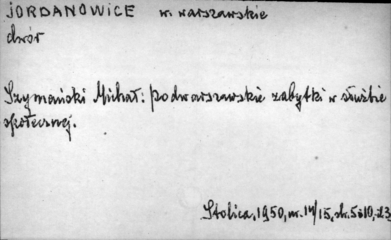 JORDANOWICE w. warszawskie
dwór
Szymański Michał: podwarszawskie zabytki w służbie
społecznej.
Stolica, 1950, nr. 14/15, str. 5 i 10, il. 3